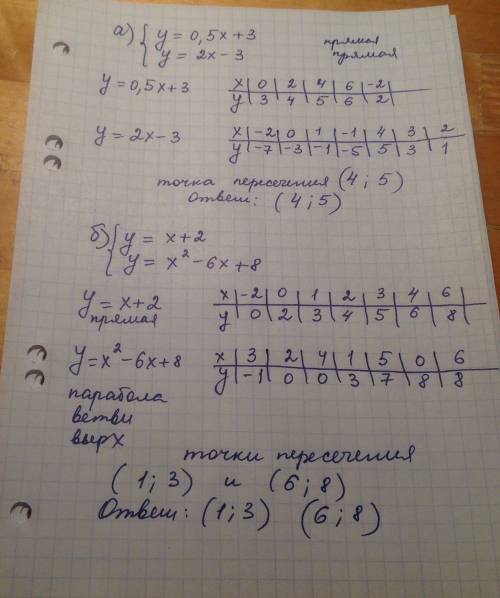 а) { y = 0,5x + 3 прямая
y = 2x - 3 прямая
y = 0,5x + 3 x | 0 | 2 | 4 | 6 | -2
y | 3 | 4 | 5 | 6 | 2
y = 2x - 3 x | -2 | 0 | 1 | -1 | 4 | 3 | 2
y | -7 | -3 | -1 | -5 | 5 | 3 | 1
точка пересечения (4; 5)
Ответ: (4; 5)
б) { y = x + 2
y = x² - 6x + 8
y = x + 2 x | -2 | 0 | 1 | 2 | 3 | 4 | 6
прямая y | 0 | 2 | 3 | 4 | 5 | 6 | 8
y = x² - 6x + 8 x | 3 | 2 | 4 | 1 | 5 | 0 | 6
y | -1 | 0 | 0 | 3 | 7 | 8 | 8
парабола
ветви
вверх
точки пересечения
(1; 3) и (6; 8)
Ответ: (1; 3) (6; 8)